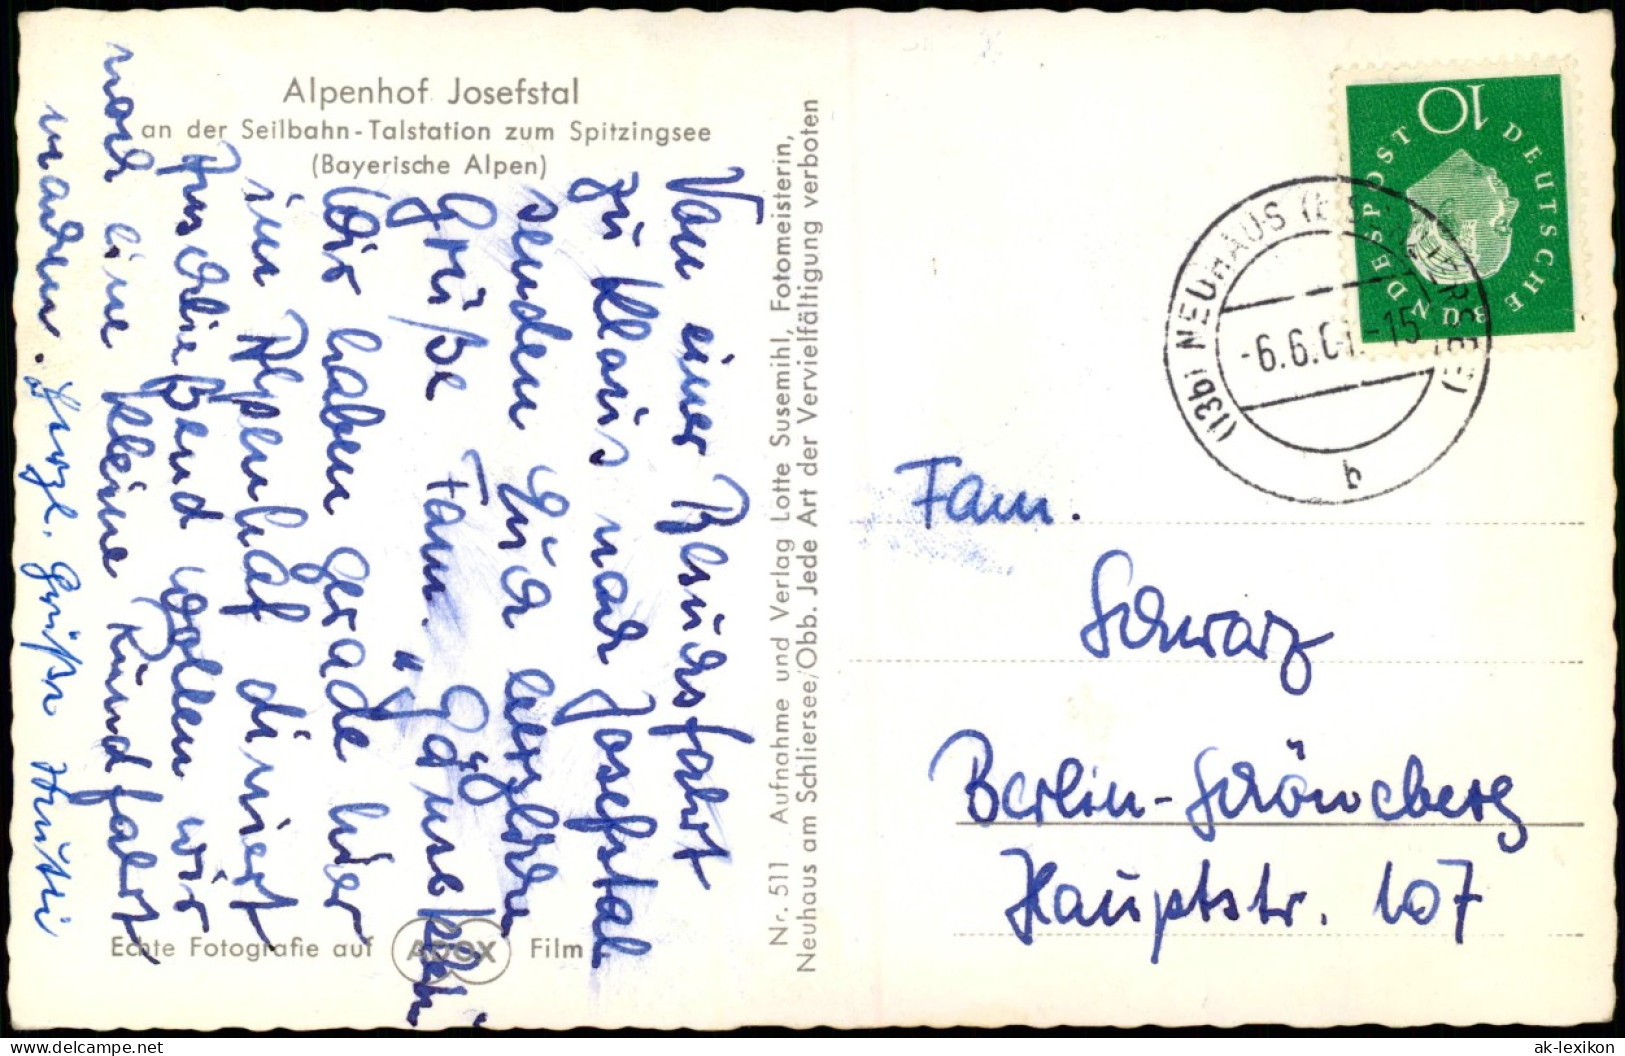 Alpenhof Josefstal
an der Seilbahn-Talstation zum Spitzingsee
(Bayerische Alpen)
Von einer Besuchsfahrt
zu Klaus nach Josefstal
senden Euch herzliche
Grüße Fam.
Wir haben gerade hier
im Alpenhof diniert
Anschließend wollen wir
noch eine kleine Rundfahrt
machen. Herzl. Grüße
Echte Fotografie auf ADOX Film
Nr. 511 Aufnahme und Verlag Lotte Susemihl, Fotomeisterin,
Neuhaus am Schliersee/Obb. Jede Art der Vervielfältigung verboten
DEUTSCHE BUNDESPOST
10
(13b) NEUHAUS (
-6.6.61.-15
b
Fam.
Schwarz
Berlin-Schöneberg
Hauptstr. 107
delcampe.net
ak-lexikon